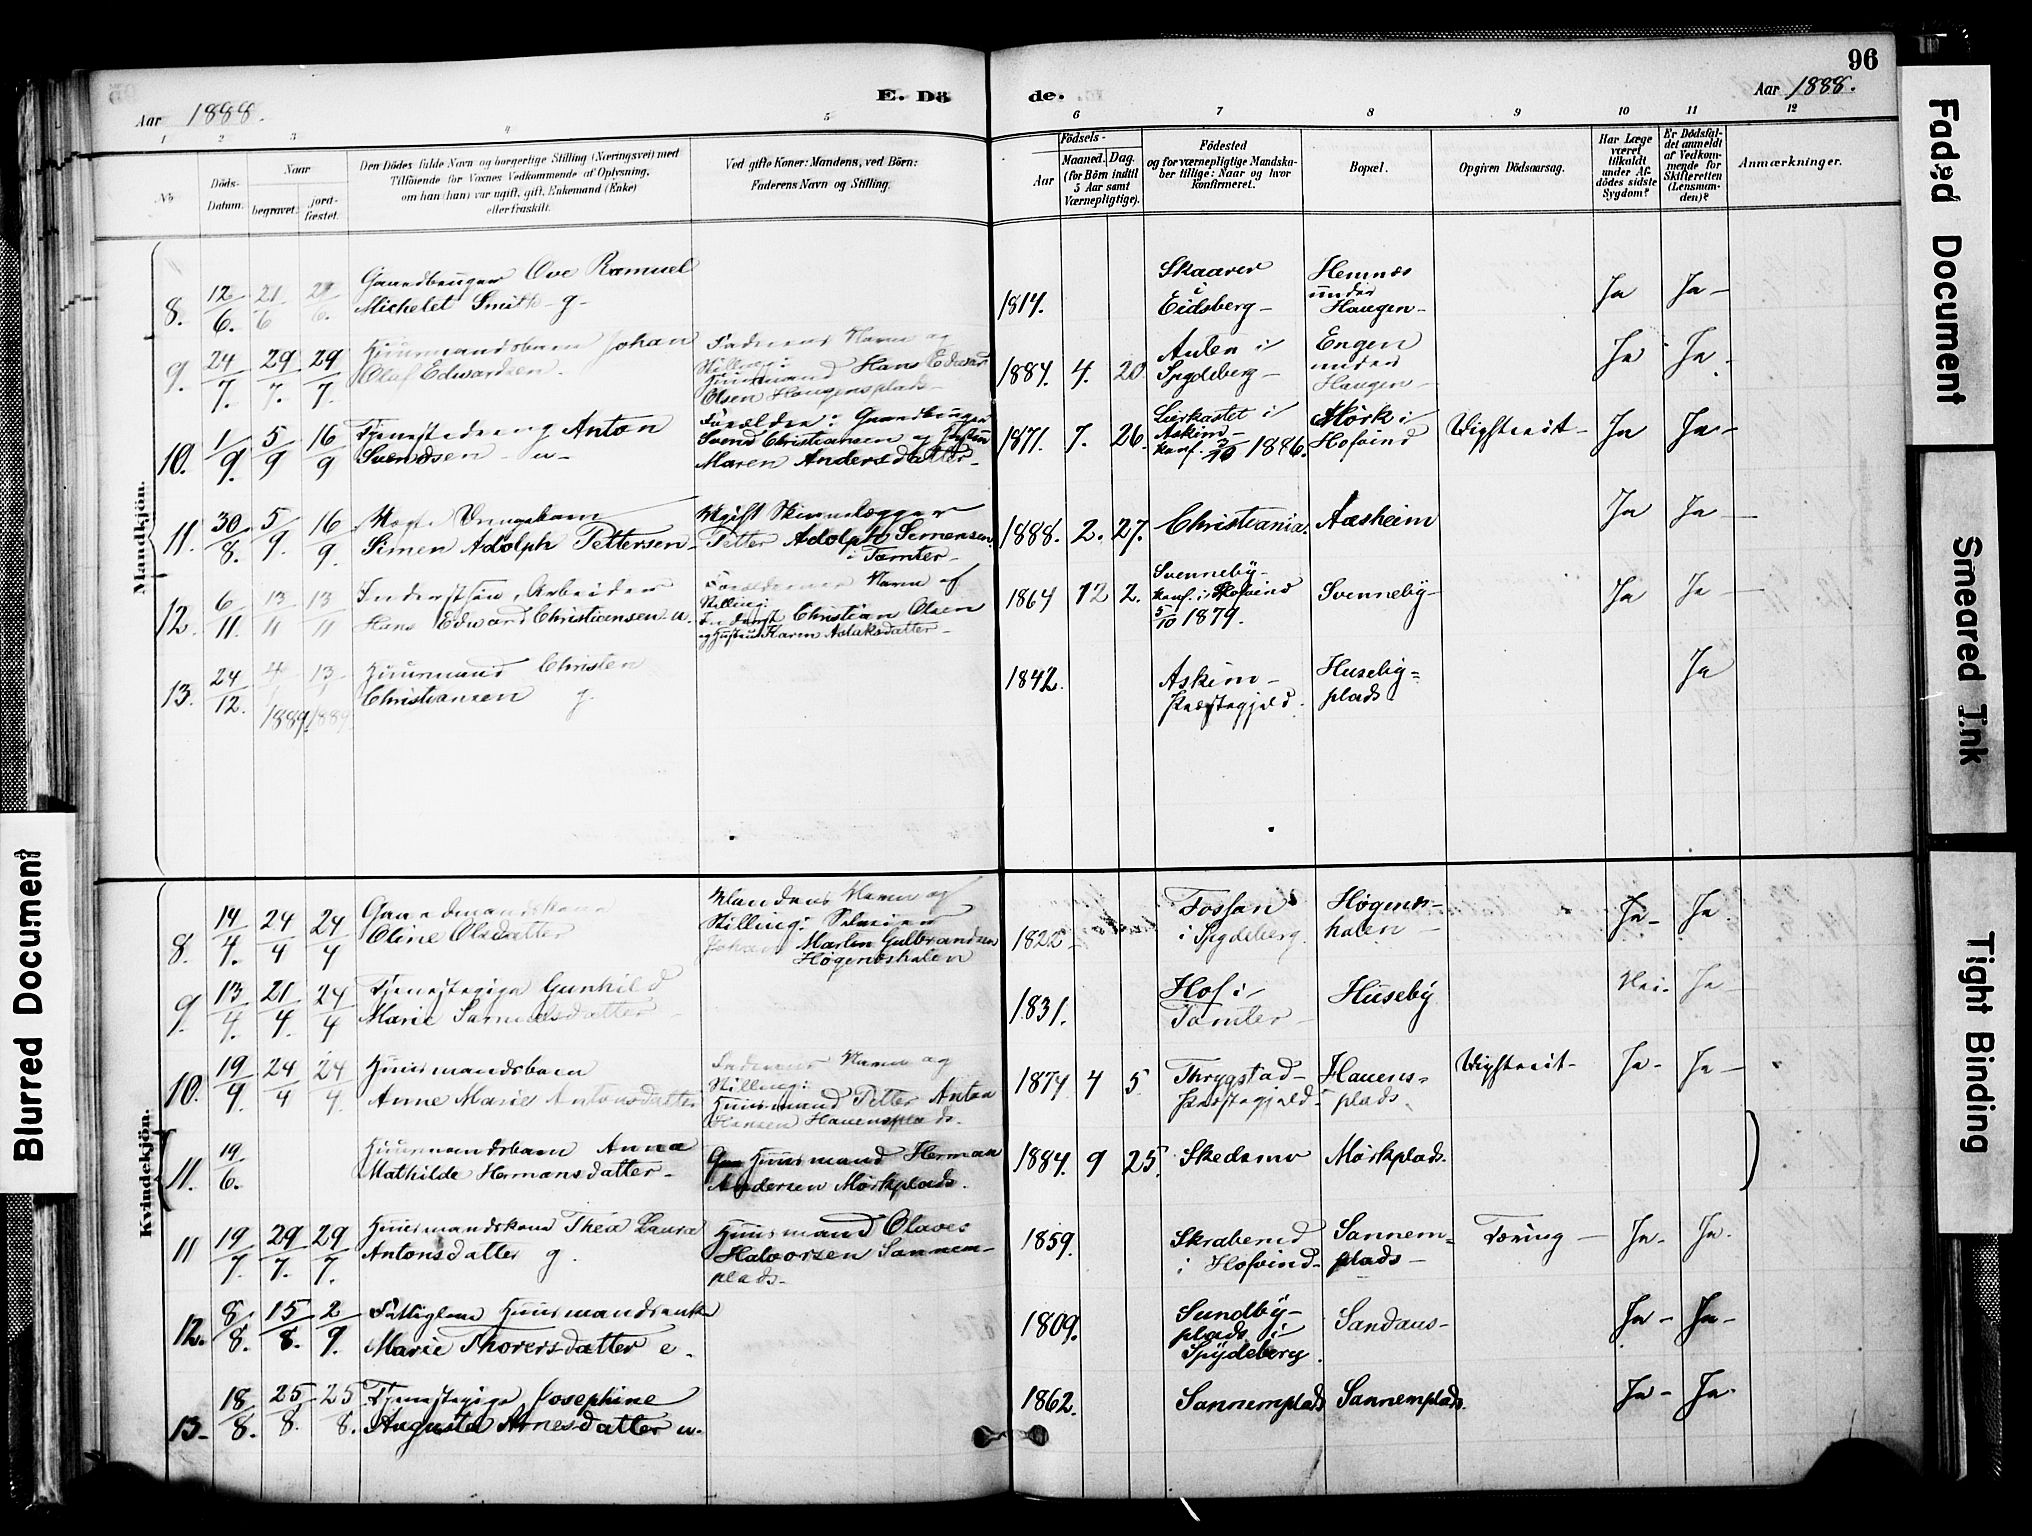 96
E. Döde.
Aar 1888.
Aar 1888.
1 2 3 4 5 6 7 8 9 10 11 12
No
Döds-Datum.
Naar
begravet.
jordfæstet.
Den Dödes fulde Navn og borgerlige Stilling (Næringsvei) med
Tilföiende for Voxnes Vedkommende af Oplysning,
om han (hun) var ugift, gift, Enkemand (Enke)
eller fraskilt.
Ved gifte Koner: Mandens, ved Börn:
Faderens Navn og Stilling.
Födsels-
Aar
Maaned.
Dag
(for Börn indtil
5 Aar samt
Værnepligtige).
Födested
og for værnepligtige Mandska-
ber tillige: Naar og hvor
konfirmeret.
Bopæl.
Opgiven Dödsaarsag.
Har Læge
været
tilkaldt
under Af-
dödes sidste
Sygdom?
Er Dödsfal-
det anmeldt
af Vedkom-
mende for
Skifteretten
(Lensman-
den)?
Anmærkninger.
Mandkjön.
8. 12/6. 21/6 21/6. Gaardbruger Ove Ramuel
Michelet Smith - g -
1814.
Skaarer
i
Eidsberg -
Hemnæs
under
Haugen -
Ja Ja -
9. 24/7. 29/7. 29/7. Huusmandsbarn Johan
Olaf Edwardsen.
Faderens Navn og
Stilling:
Huusmand Hans Edvard
Olsen Haugensplads
1884. 4. 20
i
Spydeberg -
Engen
under
Haugen -
Ja Ja -
10. 1/9. 5/9 16/9 Tjenestedreng Anton
Svendsen - u -
Forældre: Gaardbruger
Svend Christiansen og Hustru
Maren Andersdatter -
1871. 7. 26.
i
Askim -
konf. 3/10 1886.
Mörk i
Hofvind
Ja Ja -
11. 30/8. 5/9. 16/9.
Simen Adolph Pettersen -
Ugift
Petter Adolph Simensen
i Tomter -
1888. 2. 27. Christiania. Aasheim
Ja Ja -
12. 6/11. 13/11 13/11 Inderstsön, Arbeider
Hans Edward Christiansen - u.
Forældrenes Navn og
Stilling:
Inderst Christian Olsen
og Hustru Karen Aslaksdatter -
1864 12 2.
Svenneby -
konf. i Hofvind
5/10 1879.
Svenneby -
Ja Ja -
13. 24/12. 4/1 1889. 13/1 1889. Huusmand Christen
Christiansen g.
1842.
Askim -
Præstegjeld.
Huseby=
plads
Ja
Kvindekjön.
8. 14/4. 24/4 24/4 Gaardmandskone
Oline Olsdatter
Mandens Navn og
Stilling:
Johan Martin Gulbrandsen
Högenshalen
1822
Fossan
i Spydeberg.
Högens-
halen -
Ja - Ja.
9. 13/4. 21/4. 24/4 Tjenestepige Gunhild
Marie Samuelsdatter -
1831.
Hof i
Tomter -
Huseby
Nei. Ja -
10. 19/9. 24/4 24/4. Huusmandsbarn
Anne Marie Antonsdatter
Faderens Navn og
Stilling:
Huusmand Petter Anton
Hansen Hauensplads.
1874 4 5
Thrygstad -
Præstegjeld -
Hauens=
plads.
Ja - Ja -
11. 19/6. Huusmandsbarn Anna
Mathilde Hermansdatter -
Huusmand Herman
Andersen Mörkplads.
1884. 9 25. Skedsmo Mörkplads.
11 19/7. 29/7. 29/7. Huusmandskone Thea Laura
Antonsdatter g.
Huusmand Olaves
Halvorsen Sannem-
plads -
1859.
Skraberud
i Hofvind -
Sannem=
plads -
Tæring -
Ja - Ja.
12. 8/8. 15/8. 2/9. Fattiglem Huusmandsenke
Marie Thorersdatter e.
1809.
Sundby-
plads i
Spydeberg.
Sandaus -
Ja - Ja -
13 - 18/8. 25/8. 25/8. Tjenestepige Josephine
Augusta Arnesdatter u.
1862. Sannemplads Sannemplads.
Ja - Ja -
Blurred Document
Faded Document
Smeared Ink
Tight Binding